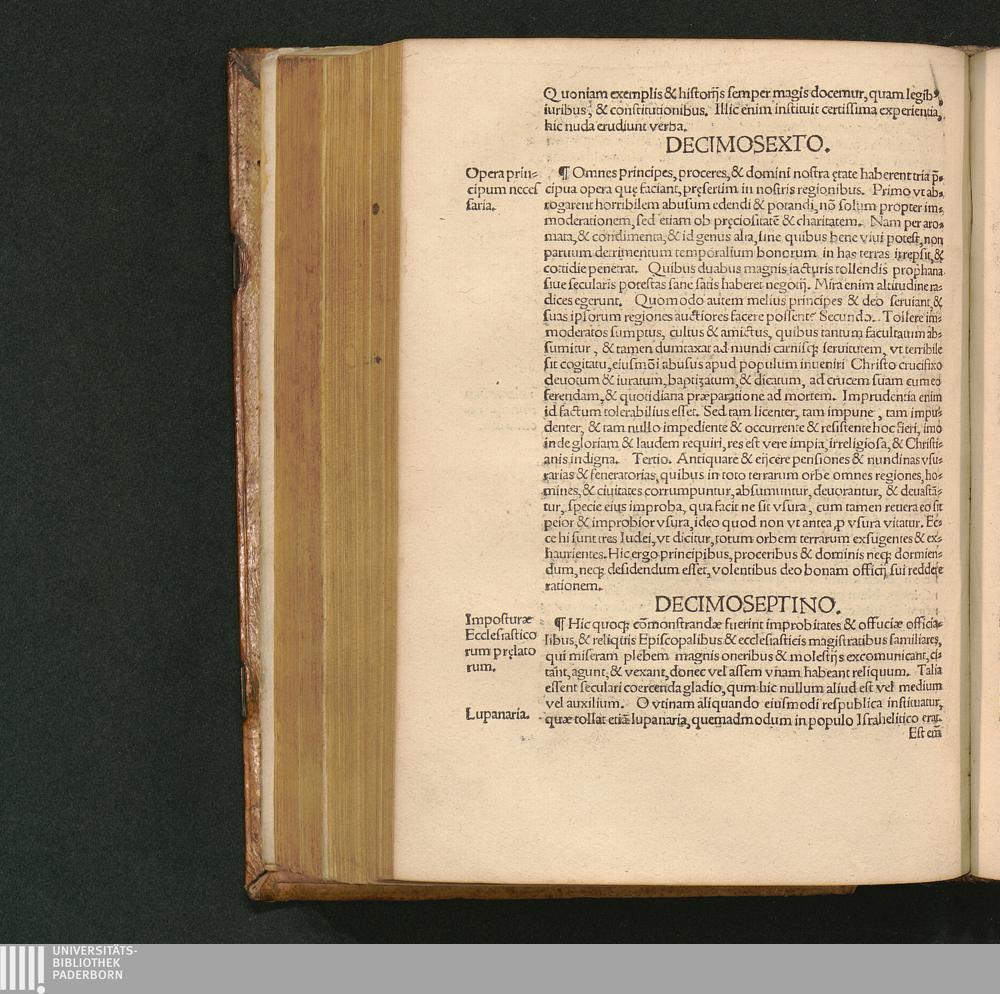 Quoniam exemplis & historijs semper magis docemur, quam legibꝰ,
iuribus, & constitutionibus. Illic enim instituit certissima experientia,
hic nuda erudiunt verba.
DECIMOSEXTO.
Opera prin-
cipum neces
saria.
¶ Omnes principes, proceres, & domini nostra ętate haberent tria p̄-
cipua opera quę faciant, pręsertim in nostris regionibus. Primo vt ab-
rogarent horribilem abusum edendi & potandi, nō solum propter im-
moderationem, sed etiam ob pręciositatē & charitatem. Nam per aro-
mata, & condimenta, & id genus alia, sine quibus bene viui potest, non
paruum detrimentum temporalium bonorum in has terras irrepsit, &
cottidie penetrat. Quibus duabus magnis iacturis tollendis prophana
siue sęcularis potestas sane satis haberet negotij. Mira enim altitudine ra-
dices egerunt. Quomodo autem melius principes & deo seruiant, &
suas ipsorum regiones auctiores facere possent? Secundo. Tollere im-
moderatos sumptus, cultus & amictus, quibus tantum facultatum ab-
sumitur, & tamen dumtaxat ad mundi carnisqꝫ seruitutem, vt terribile
sit cogitatu, eiusmōi abusus apud populum inueniri Christo crucifixo
deuotum & iuratum, baptizatum, & dicatum, ad crucem suam cum eo
ferendam, & quotidiana præparatione ad mortem. Imprudentia enim
id factum tolerabilius esset. Sed tam licenter, tam impune, tam impu-
denter, & tam nullo impediente & occurrente & resistente hoc fieri, imo
inde gloriam & laudem requiri, res est vere impia, irreligiosa, & Christi-
anis indigna. Tertio. Antiquare & eijcere pensiones & nundinas vsu-
rarias & feneratorias, quibus in toto terrarum orbe omnes regiones, ho-
mines, & ciuitates corrumpuntur, absumuntur, deuorantur, & deuastā-
tur, specie eius improba, qua facit ne sit vsura, cum tamen reuera eo sit
peior & improbior vsura, ideo quod non vt antea, ꝓ vsura vitatur. Ec-
ce hi sunt tres Iudei, vt dicitur, totum orbem terrarum exsugentes & ex-
haurientes. Hic ergo principibus, proceribus & dominis neqꝫ dormien-
dum, neqꝫ desidendum esset, volentibus deo bonam officij sui reddere
rationem.
DECIMOSEPTINO.
Imposturæ
Ecclesiastico
rum pręlato
rum.
¶ Hic quoqꝫ cōmonstrandæ fuerint improbitates & offuciæ officia-
libus, & reliquis Episcopalibus & ecclesiasticis magistratibus familiares,
qui miseram plebem magnis oneribus & molestijs excomunicant, ci-
tānt, agunt, & vexant, donec vel assem vnam habeant reliquum. Talia
essent seculari coercenda gladio, qum hic nullum aliud est vel medium
vel auxilium. O vtinam aliquando eiusmodi respublica instituatur,
Lupanaria.
quæ tollat etiā lupanaria, quemadmodum in populo Israhelitico erat.
Est em̄
UNIVERSITÄTS-
BIBLIOTHEK
PADERBORN